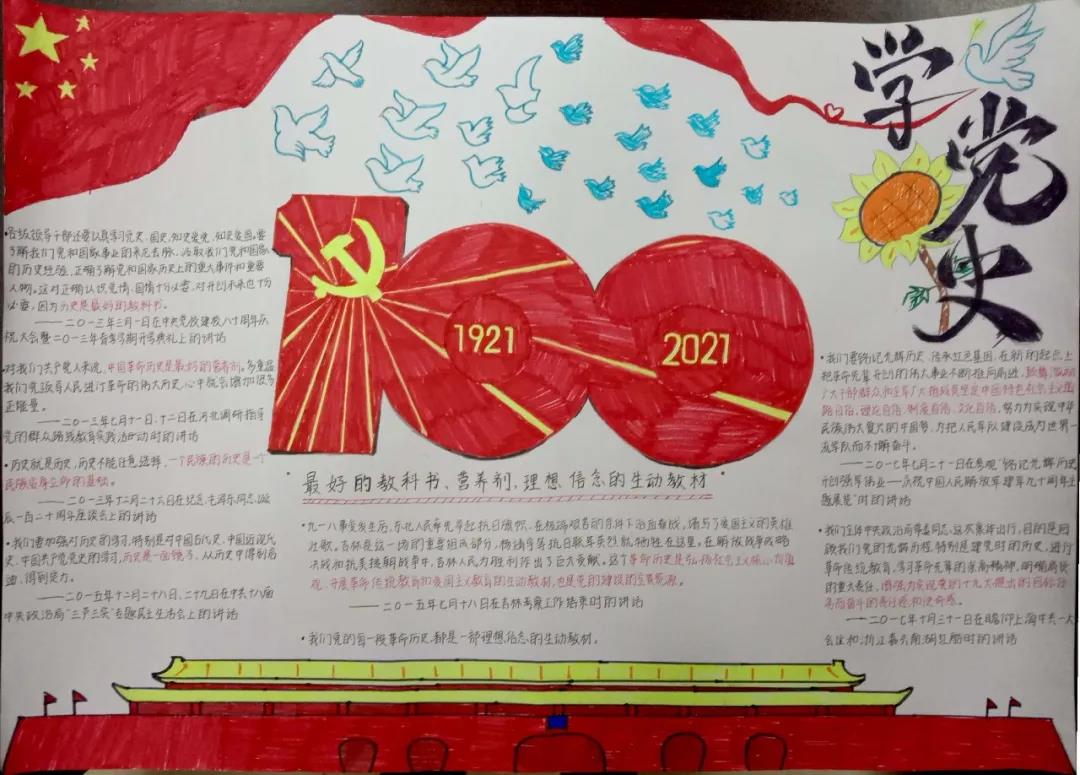 学党史
1921
2021
最好的教科书、营养剂、理想信念的生动教材
•各级领导干部还要认真学习党史、国史,知史爱党,知史爱国。要
了解我们党和国家事业的来龙去脉,汲取我们党和国家
的历史经验,正确了解党和国家历史上的重大事件和重要
人物。这对正确认识党情、国情十分必要,对开创未来也十分
必要,因为历史是最好的教科书。
——二〇一三年三月一日在中央党校建校八十周年庆
祝大会暨二〇一三年春季学期开学典礼上的讲话
•对我们共产党人来说,中国革命历史是最好的营养剂。多重温
我们党领导人民进行革命的伟大历史,心中就会增加很多
正能量。
——二〇一三年七月十一日、十二日在河北调研指导
党的群众路线教育实践活动时的讲话
•历史就是历史,历史不能任意选择,一个民族的历史是一个
民族安身立命的基础。
——二〇一三年十二月二十六日在纪念毛泽东同志诞
辰一百二十周年座谈会上的讲话
•我们要加强对历史的学习,特别是对中国古代史、中国近现代
史、中国共产党党史的学习,历史是一面镜子,从历史中得到启
迪、得到定力。
——二〇一五年十二月二十八日、二十九日在中共十八届
中央政治局“三严三实”专题民主生活会上的讲话
•九一八事变发生后,东北人民率先举起抗日旗帜,在极端艰苦的条件下浴血奋战,谱写了爱国主义的英雄
壮歌。吉林是这一场的重要组成部分,杨靖宇等抗日联军英烈就牺牲在这里。在解放战争战略
决战和抗美援朝战争中,吉林人民为胜利作出了巨大贡献。这个革命历史是弘扬社会主义核心价值
观、开展革命传统教育和爱国主义教育的生动教材,也是党的建设的宝贵资源。
——二〇一五年七月十八日在吉林考察工作结束时的讲话
•我们党的每一段革命历史,都是一部理想信念的生动教材。
•我们要铭记光辉历史、传承红色基因,在新的起点上
把革命先辈开创的伟大事业不断推向前进,
广大干部群众和全军广大指战员坚定中国特色社会主义道
路自信、理论自信、制度自信、文化自信,努力为实现中华
民族伟大复兴的中国梦、为把人民军队建设成为世界一
流军队而不懈奋斗。
——二〇一七年七月二十一日在参观“铭记光辉历史
开创强军伟业——庆祝中国人民解放军建军九十周年主
题展览”时的讲话
•我们全体中央政治局常委同志,这次集体出行,目的是回
顾我们党的光辉历程特别是建党时的历史,进行
革命传统教育,学习革命先辈的崇高精神,明确肩负
的重大责任,增强为实现党的十九大提出的目标任
务而奋斗的责任感和使命感。
——二〇一七年十月三十一日在瞻仰上海中共一大
会址和浙江嘉兴南湖红船时的讲话